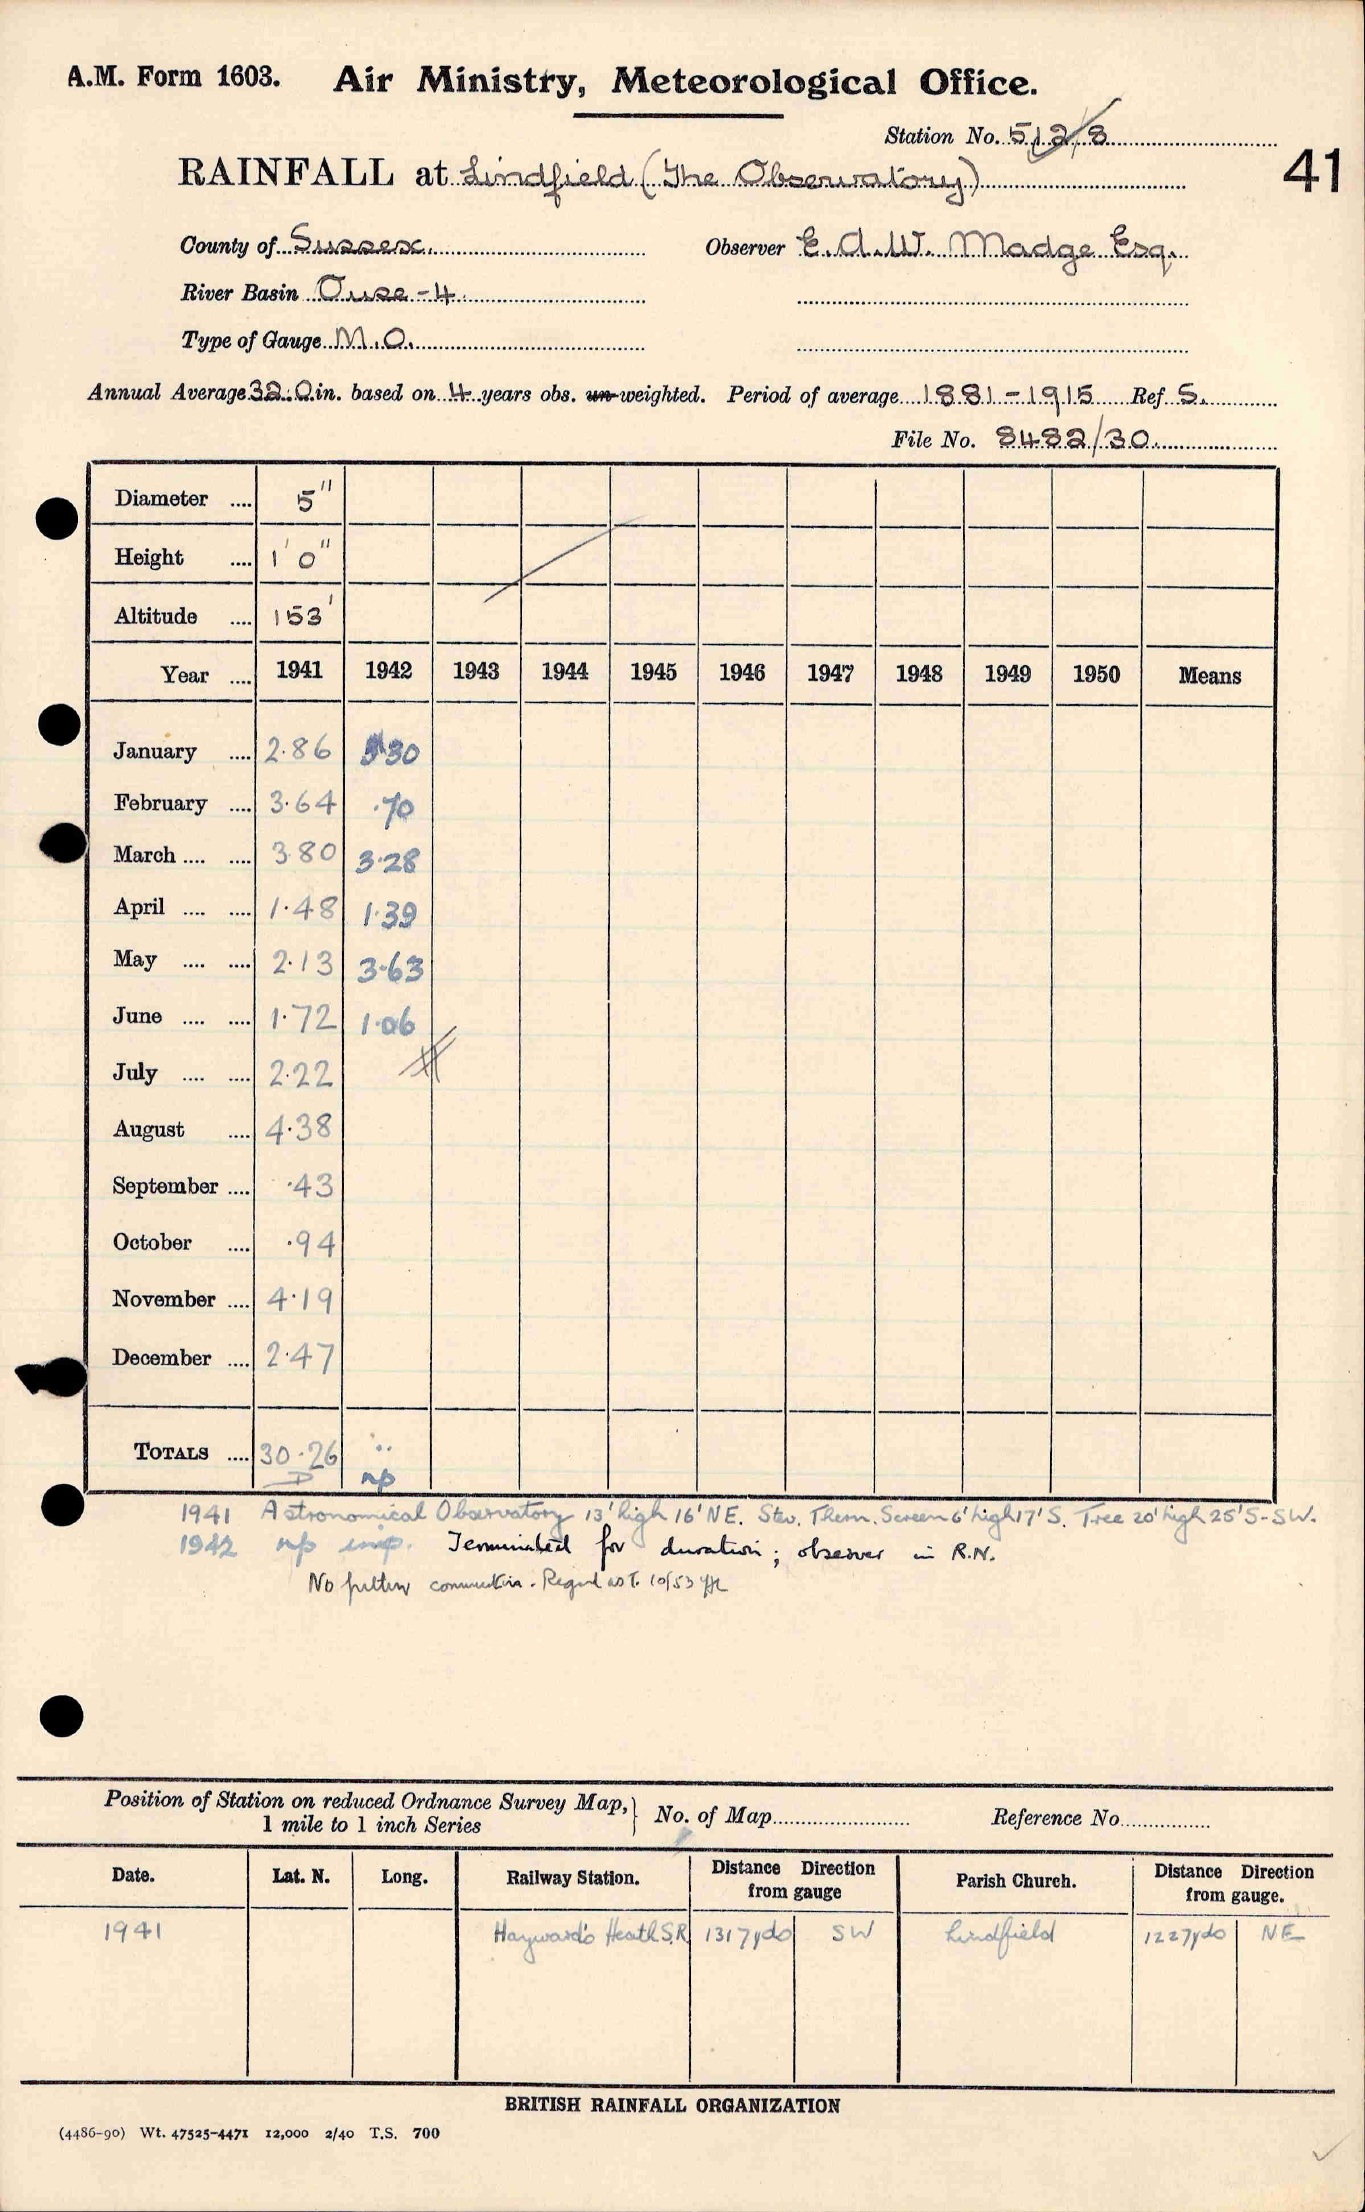 A.M. Form 1603. Air Ministry, Meteorological Office.
Station No. 512/8
41
RAINFALL at Lindfield (The Observatory)
County of Sussex. Observer E.A.W. Madge Esq.
River Basin Ouse-4.
Type of Gauge M.O.
Annual Average 32.0 in. based on 4 years obs. un-weighted. Period of average 1881-1915 Ref S.
File No. 8482/30.
Diameter .... 5"
Height .... 1' 0"
Altitude .... 153'
Year .... 1941 1942 1943 1944 1945 1946 1947 1948 1949 1950 Means
January .... 2.86 3.30
February .... 3.64 .70
March .... .... 3.80 3.28
April .... .... 1.48 1.39
May .... .... 2.13 3.63
June .... .... 1.72 1.06
July .... .... 2.22
August .... 4.38
September .... .43
October .... .94
November .... 4.19
December .... 2.47
TOTALS .... 30.26 ..
D np
1941 Astronomical Observatory 13' high 16' NE. Stev. Therm. Screen 6' high 17' S. Tree 20' high 25' S-SW.
1942 np inip. Terminated for duration; observer in R.N.
No further communication. Regard as T. 10/53
Position of Station on reduced Ordnance Survey Map, 1 mile to 1 inch Series } No. of Map.......... Reference No..........
Date. Lat. N. Long. Railway Station. Distance Direction from gauge Parish Church. Distance Direction from gauge.
1941 Hayward's Heath S.R. 1317 yds SW Lindfield 1227 yds NE
BRITISH RAINFALL ORGANIZATION
(4486-90) Wt. 47525-4471 12,000 2/40 T.S. 700